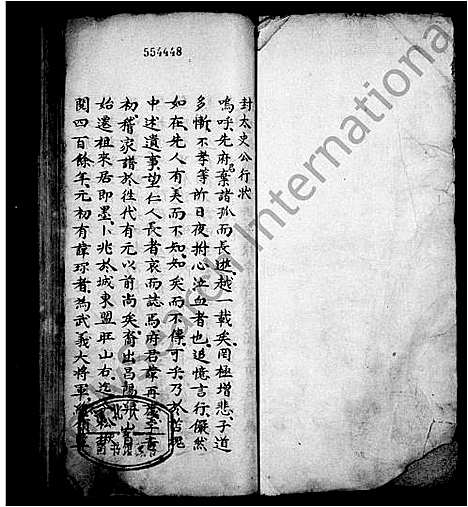 554448
封太史公行狀
嗚呼先府君棄諸孤而長逝越一載矣罔極增悲子道
多慚不孝等所日夜拊心泣血者也追憶言行儼然
如在先人有美而不知知矣而不傳可乎乃於苫塊
中述遺事望仁人長者哀而誌焉府君諱再
初稽家譜於往代有元以前尚矣裔出呂陽
始遷祖來居即墨卜兆於城東盟旺山右迄
閱四百餘年元初有諱琛者為武義大將軍
Research International